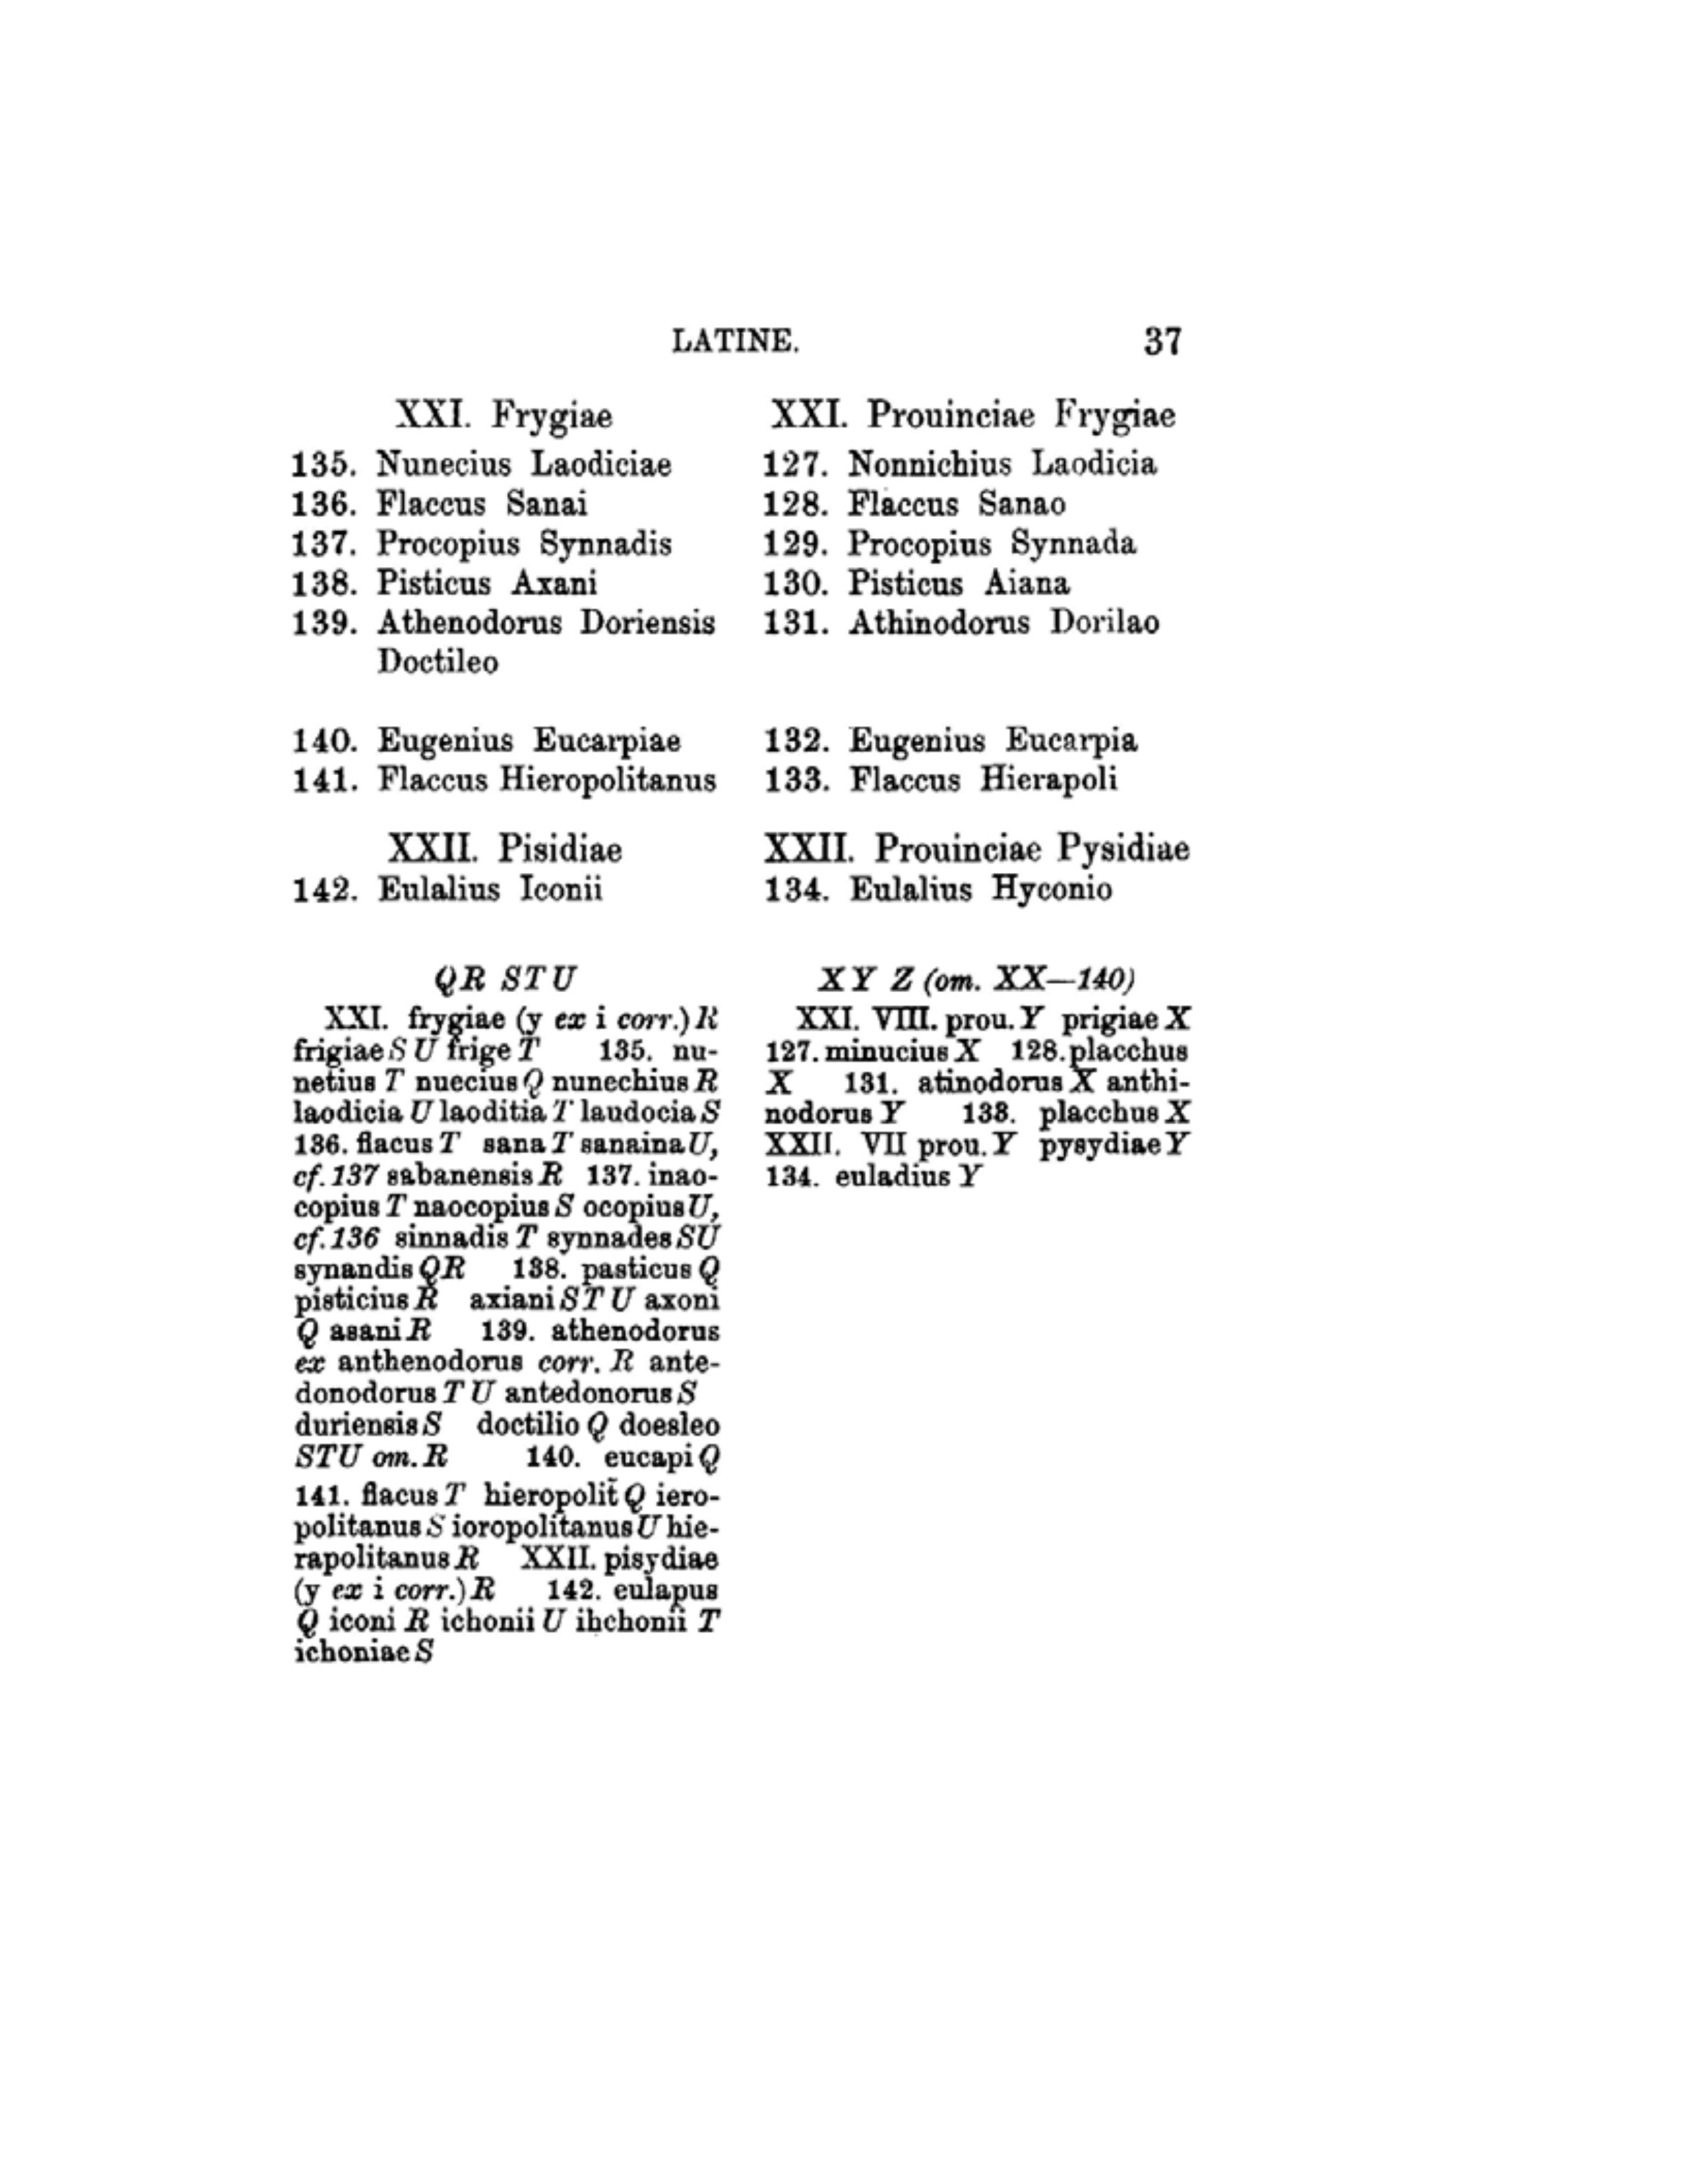 LATINE. 37
XXI. Frygiae
135. Nunecius Laodiciae
136. Flaccus Sanai
137. Procopius Synnadis
138. Pisticus Axani
139. Athenodorus Doriensis
Doctileo
140. Eugenius Eucarpiae
141. Flaccus Hieropolitanus
XXII. Pisidiae
142. Eulalius Iconii
QR STU
XXI. frygiae (y ex i corr.) R
frigiae S U frige T 135. nu-
netius T nuecius Q nunechius R
laodicia U laoditia T laudocia S
136. flacus T sana T sanaina U,
cf. 137 sabanensis R 137. inao-
copius T naocopius S ocopius U,
cf. 136 sinnadis T synnades SU
synandis QR 138. pasticus Q
pisticius R axiani S T U axoni
Q asani R 139. athenodorus
ex anthenodorus corr. R ante-
donodorus T U antedonorus S
duriensis S doctilio Q doesleo
STU om. R 140. eucapi Q
141. flacus T hieropolit̄ Q iero-
politanus S ioropolitanus U hie-
rapolitanus R XXII. pisydiae
(y ex i corr.) R 142. eulapus
Q iconi R ichonii U ihchonii T
ichoniae S
XXI. Prouinciae Frygiae
127. Nonnichius Laodicia
128. Flaccus Sanao
129. Procopius Synnada
130. Pisticus Aiana
131. Athinodorus Dorilao
132. Eugenius Eucarpia
133. Flaccus Hierapoli
XXII. Prouinciae Pysidiae
134. Eulalius Hyconio
X Y Z (om. XX—140)
XXI. VIII. prou. Y prigiae X
127. minucius X 128. placchus
X 131. atinodorus X anthi-
nodorus Y 133. placchus X
XXII. VII prou. Y pysydiae Y
134. euladius Y